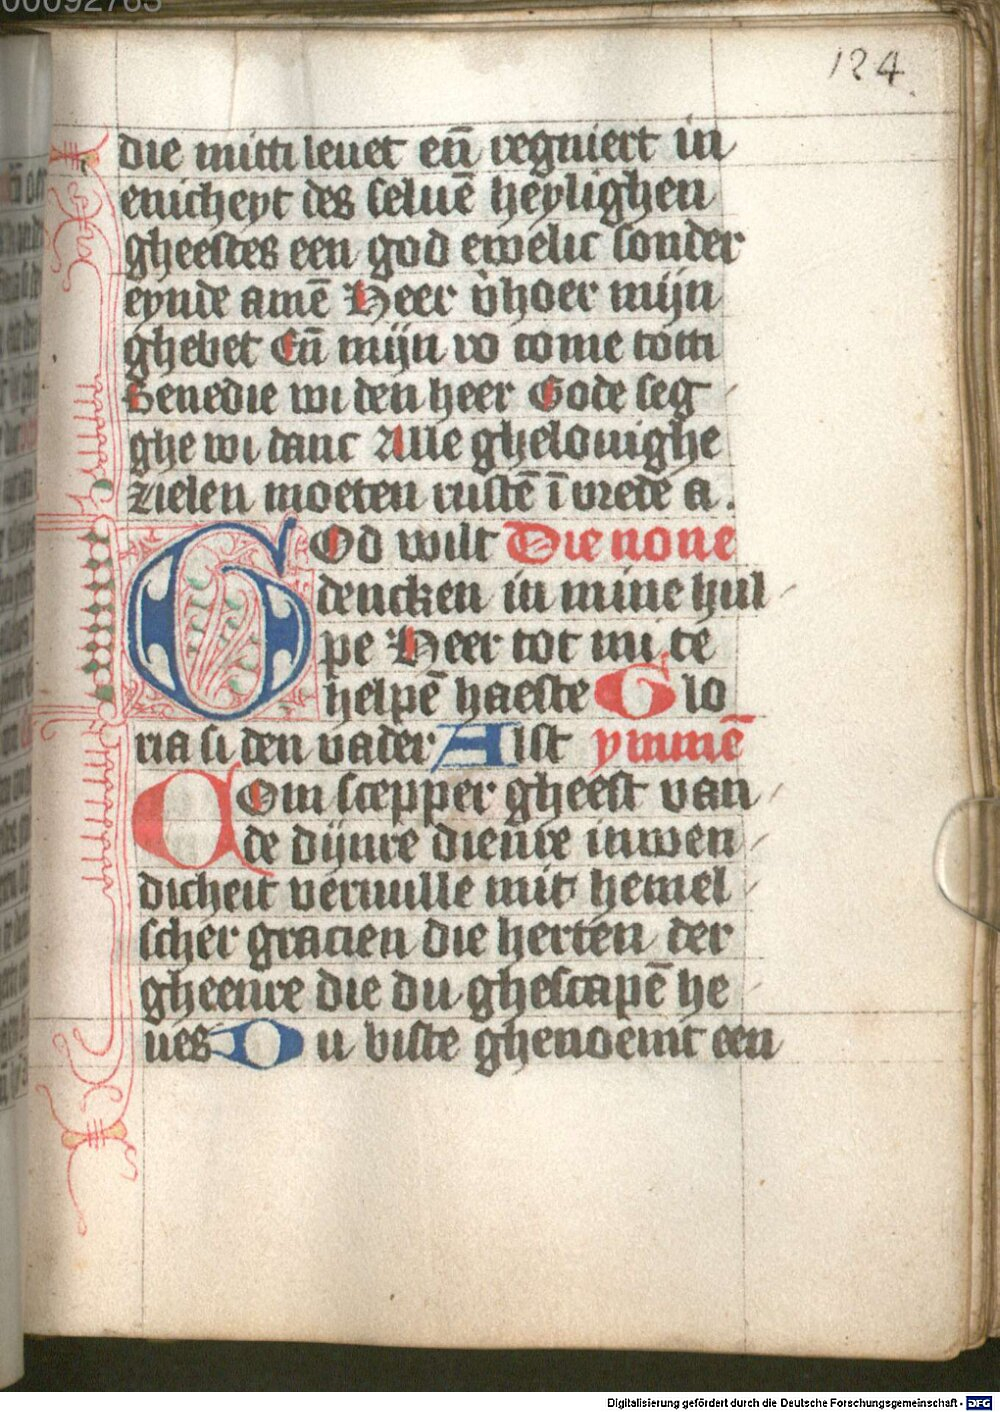 00092763
124
die mitti leuet en̄ regniert in
enicheyt des seluē heylighen
gheestes een god ewelic sonder
eynde amē Heer v̓hoer mijn
ghebet En̄ mijn ro come totti
Benedie wi den heer Gode seg
ghe wi danc Alle ghelouighe
zielen moeten rustē ī vrede a.
God wilt Die none
dencken in mine hul
pe Heer tot mi te
helpē haeste Glo
ria si den vader Alst ymmē
Com scepper gheest van
de dijnre dienre inwen
dicheit veruulle mit hemel
scher gracien die herten der
gheenre die du ghescapē he
ues Du biste ghenoemt een
Digitalisierung gefördert durch die Deutsche Forschungsgemeinschaft - DFG